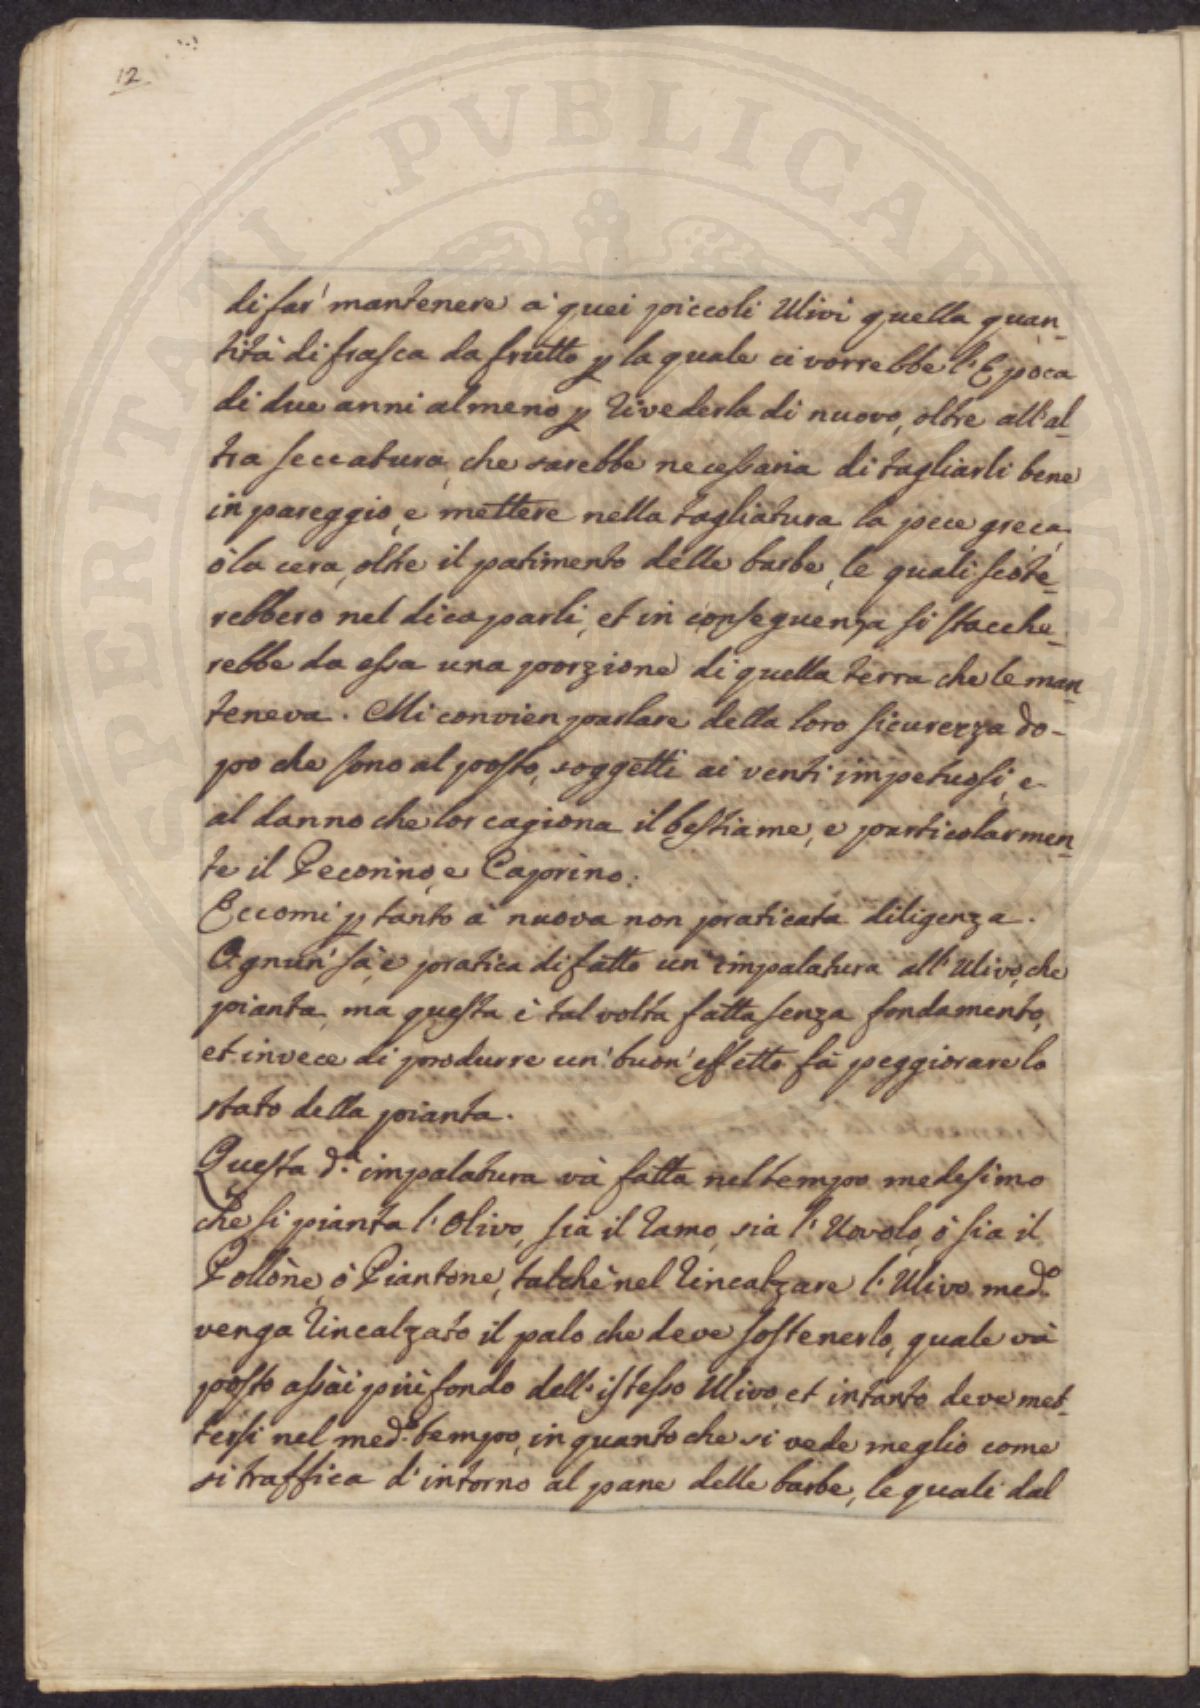 12
di far' mantenere a' quei piccoli Ulivi quella quan-
tità di frasca da frutto p la quale ci vorrebbe l'Epoca
di due anni almeno p rivederla di nuovo, oltre all'al-
tra seccatura, che sarebbe necessaria di tagliarli bene
in pareggio, e mettere nella tagliatura la pece greca,
ò la cera, oltre il patimento delle barbe, le quali scote-
rebbero nel dicaparli, et in conseguenza si stacche-
rebbe da essa una porzione di quella terra che le man-
teneva. Mi convien parlare della loro sicurezza do-
po che sono al posto, soggetti ai venti impetuosi, e
al danno che lor cagiona il bestiame, e particolarmen-
te il Pecorino, e Caprino.
Eccomi p tanto à nuova non praticata diligenza.
Ognun' sà, e pratica di fatto un' impalatura all'Ulivo, che
pianta, ma questa è tal volta fatta senza fondamento,
et invece di produrre un' buon' effetto fà peggiorare lo
stato della pianta.
Questa d.a impalatura và fatta nel tempo medesimo
che si pianta l'Olivo, sia il ramo, sia l'Uovolo, ò sia il
Pollone, ò Piantone, talchè nel rincalzare l'Ulivo med.o
venga rincalzato il palo che deve sostenerlo, quale và
posto assai più fondo dell'istesso Ulivo, et intanto deve met-
tersi nel med.o tempo, in quanto che si vede meglio come
si traffica d'intorno al pane delle barbe, le quali dal
SPERITATI PUBLICAE